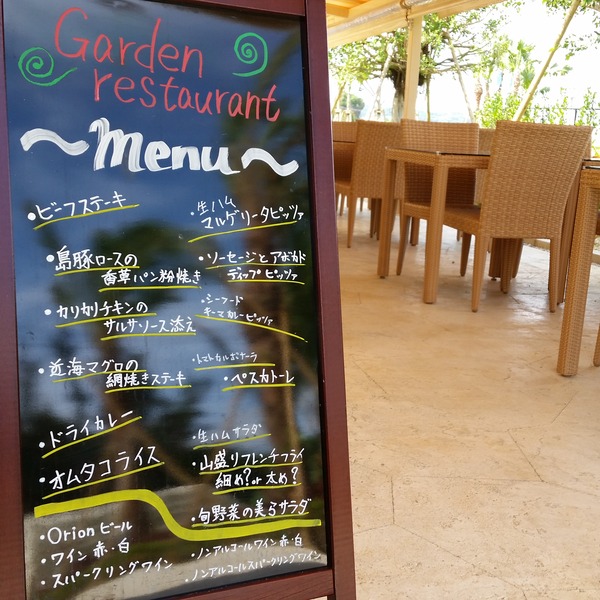 Garden
restaurant
~Menu~
・ビーフステーキ
・島豚ロースの
香草パン粉焼き
・カリカリチキンの
サルサソース添え
・近海マグロの
網焼きステーキ
・ドライカレー
・オムタコライス
・生ハム
マルゲリータピッツァ
・ソーセージとアボカド
ディップピッツァ
・シーフード
キーマカレーピッツァ
・トマトカルボナーラ
・ペスカトーレ
・生ハムサラダ
・山盛りフレンチフライ
細め?or太め?
・旬野菜の美らサラダ
・Orionビール
・ワイン 赤・白
・スパークリングワイン
・ノンアルコールワイン 赤・白
・ノンアルコールスパークリングワイン